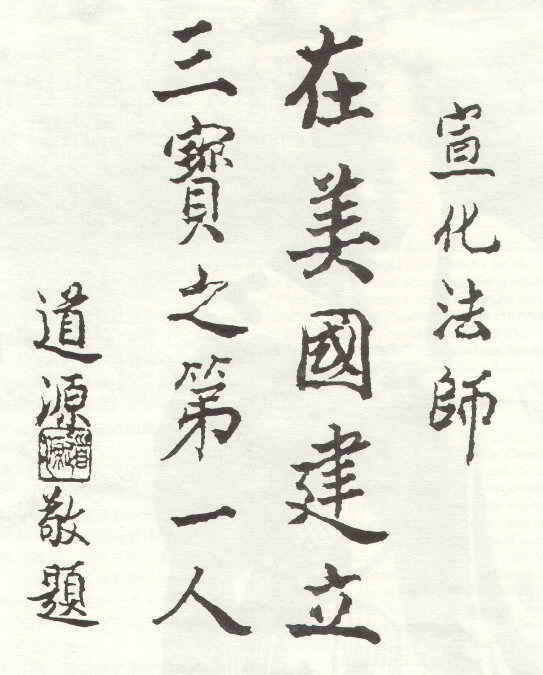 宣化法師
在美國建立
三寶之第一人
道源敬題